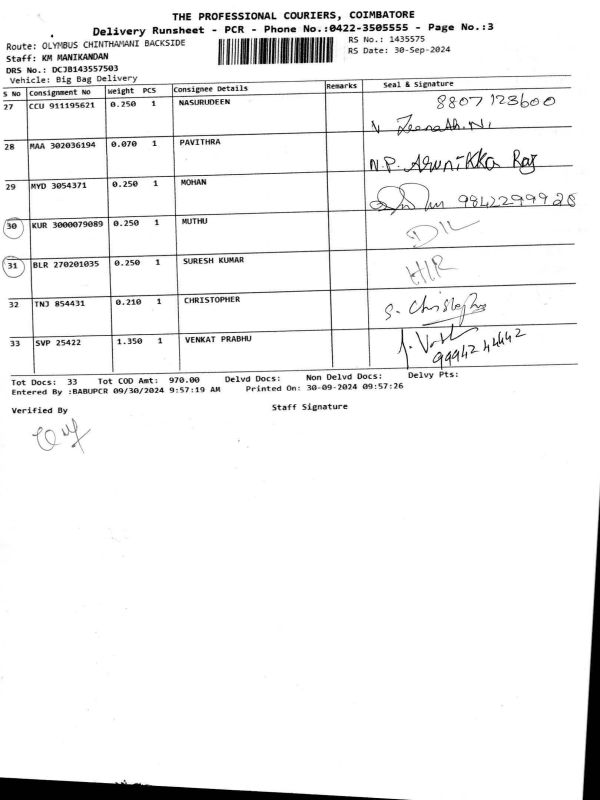 THE PROFESSIONAL COURIERS, COIMBATORE
Delivery Runsheet - PCR - Phone No.:0422-3505555 - Page No.:3
Route: OLYMBUS CHINTHAMANI BACKSIDE
RS No.: 1435575
Staff: KM MANIKANDAN
RS Date: 30-Sep-2024
DRS No.: DCJB143557503
Vehicle: Big Bag Delivery
S No Consignment No Weight PCS Consignee Details Remarks Seal & Signature
27 CCU 911195621 0.250 1 NASURUDEEN 8807123600
28 MAA 302036194 0.070 1 PAVITHRA N.P. Arunikka Raj
29 MYD 3054371 0.250 1 MOHAN 9842299926
30 KUR 3000079089 0.250 1 MUTHU DIL
31 BLR 270201035 0.250 1 SURESH KUMAR HIR
32 TNJ 854431 0.210 1 CHRISTOPHER S. Christopher
33 SVP 25422 1.350 1 VENKAT PRABHU
Tot Docs: 33 Tot COD Amt: 970.00 Delvd Docs: Non Delvd Docs: Delvy Pts:
Entered By :BABUPCR 09/30/2024 9:57:19 AM Printed On: 30-09-2024 09:57:26
Verified By Staff Signature